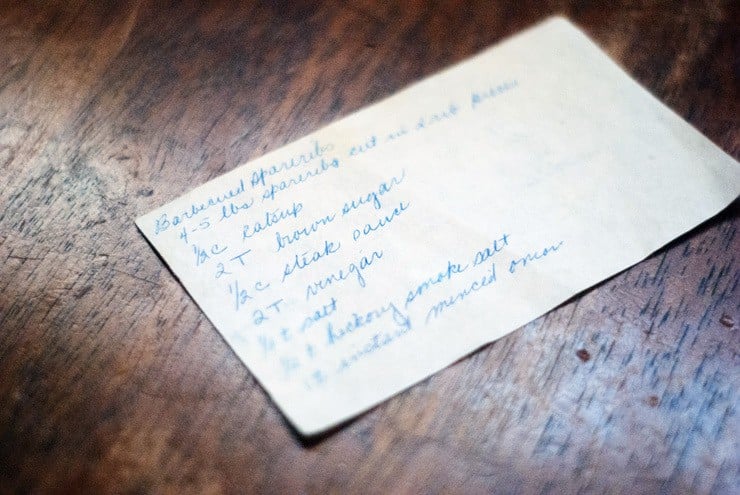 Barbecued Spareribs
4-5 lbs spareribs cut in 2 rib pieces
1/2 c catsup
2 T brown sugar
1/2 c steak sauce
2 T vinegar
t salt
t hickory smoke salt
instant minced onion